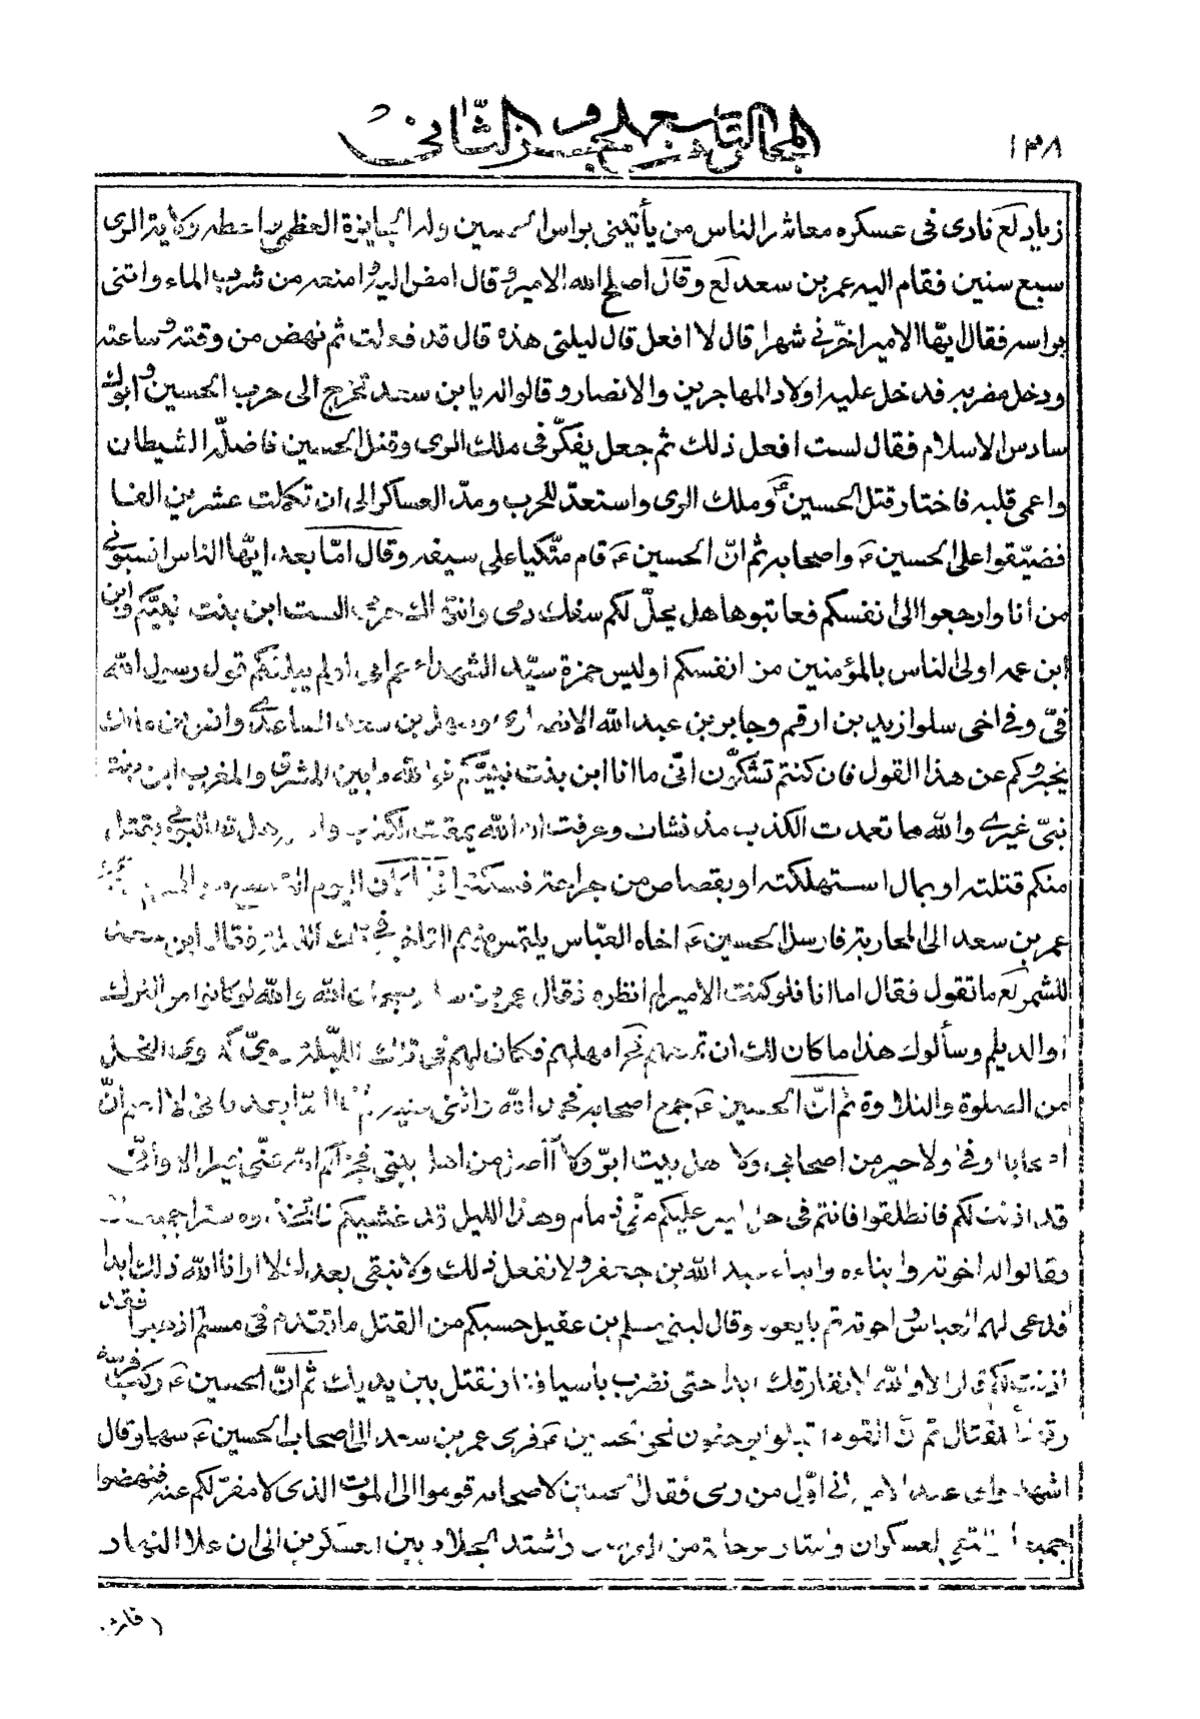 ١٣٨
المجلس التاسع من الجزء الثاني
زياد لع نادى فى عسكره معاشر الناس من يأتينى براس الحسين وله الجايزة العظمى واعطه ولاية الرى
سبع سنين فقام اليه عمر بن سعد لع وقال اصلح الله الامير قال امض اليه وامنعه من شرب الماء واتنى
براسه فقال ايّها الامير اخّرنى شهرا قال لا افعل قال ليلتى هذه قال قد فعلت ثم نهض من وقته وساعته
ودخل مضربه فدخل عليه اولاد المهاجرين والانصار وقالوا له يا بن سعد تخرج الى حرب الحسين وابوك
سادس الاسلام فقال لست افعل ذلك ثم جعل يفكّر فى ملك الرى وقتل الحسين فاضلّه الشيطان
واعمى قلبه فاختار قتل الحسين ع وملك الرى واستعدّ للحرب ومدّ العساكر الى ان تكملت عشرين الفا
فضيّقوا على الحسين ع واصحابه ثم انّ الحسين ع قام متّكيا على سيفه وقال امّا بعد ايّها الناس انسبونى
من انا وارجعوا الى انفسكم فعاتبوها هل يحلّ لكم سفك دمى وانتهاك حرمى الست ابن بنت نبيّكم وابن
ابن عمه اولى الناس بالمؤمنين من انفسكم اوليس حمزة سيّد الشهداء عم ابى اولم يبلغكم قول رسول الله
فىّ وفى اخى سلوا زيد بن ارقم وجابر بن عبد الله الانصارى وسهل بن سعد الساعدى وانس بن مالك
يخبروكم عن هذا القول فان كنتم تشكّون انّى ما انا ابن بنت نبيّكم فوالله ما بين المشرق والمغرب ابن بنت
نبىّ غيرى والله ما تعمدت الكذب مذ نشات وعرفت ان الله يمقت الكذب
منكم قتلته او بمال استهلكته او بقصاص من جراحة فسكتوا كان اليوم
عمر بن سعد الى المحاربة فارسل الحسين ع اخاه العبّاس يلتمس منهم التاخير فى تلك الليلة فقال ابن سعد
للشمر لع ما تقول فقال اما انا فلو كنت الامير لم انظره فقال عمرو بن سبحان الله والله لو كانوا من الترك
او الديلم وسألوك هذا ما كان لك ان تمنعهم فح امهلهم فكان لهم فى تلك الليلة دوىّ كدوى النحل
من الصلوة والتلاوة ثم انّ الحسين ع جمع اصحابه فحمد الله واثنى عليه ثم قال امّا بعد فانى لا اعلم انّ
اصحابا اوفى ولا خير من اصحابى ولا اهل بيت ابرّ ولا اوصل من اهل بيتى فجزاكم الله عنّى خيرا الا وانّى
قد اذنت لكم فانطلقوا فانتم فى حل ليس عليكم منّى ذمام وهذا الليل قد غشيكم فاتخذوه سترا جميعا
فقالوا له اخوته وابناءه وابناء عبد الله بن جعفر ولا نفعل ذلك ولا نبقى بعدك لا ارانا الله ذلك ابدا
فدعى لهم العباس واخوته ثم بايعوه وقال لبنى مسلم بن عقيل حسبكم من القتل ما تقدم فى مسلم اذهبوا فقد
اذنت لكم قالوا لا والله لا نفارقك ابدا حتى نضرب بأسيافنا ونقتل بين يديك ثم انّ الحسين ع ركب فرسه
القتال ثم انّ القوم اقبلوا يوجهون نحو الحسين ع فرمى عمر بن سعد الى اصحاب الحسين ع سهما وقال
اشهدوا لى عند الامير انى اوّل من رمى فقال الحسين لاصحابه قوموا الى الموت الذى لا مفرّ لكم عنه فنهضوا
جميعا التقى العسكران واشتد الجلاد بين العسكرين الى ان علا النهار